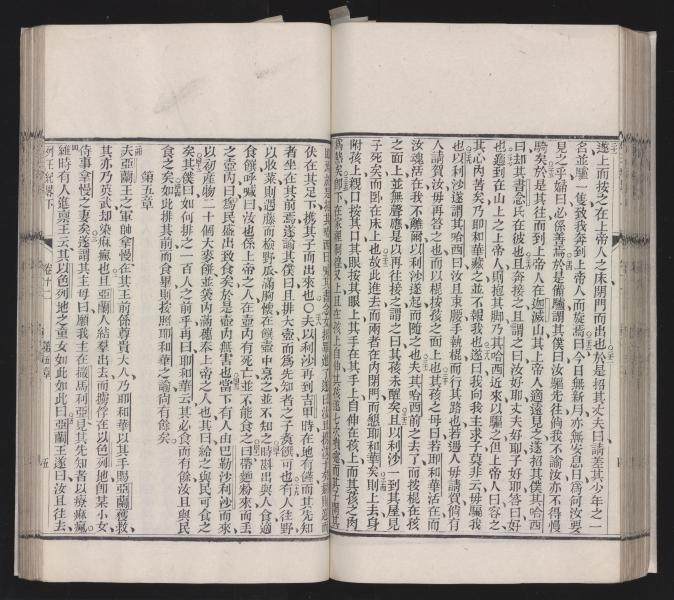 遂上而按之在上帝人之床閉門而出也於是招其丈夫曰請差其少年之一
名並驢一隻致我奔到上帝人而旋焉曰今日無新月亦無安息日爲何汝要
見之乎婦曰必係善焉於是備驢謂其僕曰汝驅先往倘我不諭汝亦不得慢
騎矣於是其往而到上帝人在迦滅山其上帝人適遠見之遂招其僕其哈西
曰却其書念氏在彼也且奔接之且謂之曰汝好耶丈夫好耶子好耶答曰好
也迨到在山之上上帝人則抱其脚乃其哈西近來以驅之但上帝人曰容之
其心內苦矣乃耶和華之並不報我也遂曰我向我主求子乎莫非云毋騙我
也以利沙遂謂其哈西曰汝且束腰手執棍而行其路也若遇人毋請賀倘有
人請賀汝毋再答之也而以棍按孩之面上也其孩之母曰若耶和華活在而
汝魂活在我不離爾以利沙遂起而隨之也夫其哈西前之去了而按棍在孩
之面上並無聲應是以再往接之謂之曰其孩未醒矣且以利沙一到其屋見
子死矣而卧在床上也故此進去而兩者在內閉門而懇耶和華矣則上去身
附孩上親口按其口其眼按其眼上其手在其手上自伸在孩上而其孩之肉
伏在其足下攜其子而出來也〇夫以利沙再到吉甲時在地有饉而其先知
者坐在其前焉遂諭其僕曰且排大壺而爲先知者之子煑饌可也有人往野
以收菜則遇藤而檢野瓜滿胸懷在饌壺中烹之並不知之時斟出與人食適
食饌呼喊曰汝也係上帝之人在壺內有死亡並不能食之曰帶麵粉來而丟
之壺內曰爲民盛出致食矣於是壺內無害也當下有人由巴勒沙利沙而來
以初產物二十個大麥餅並莢內滿穗奉上帝之人也其曰給之與民可食之
矣其僕曰如何排之一百人之前乎再曰耶和華云其必食而有餘汝且與民
食之矣如此排其前而食畢則按照耶和華之諭尚有餘矣
第五章
夫亞蘭王之軍帥拿慢在其王前係尊貴大人乃耶和華以其手賜亞蘭獲救
其亦乃英武却染痲瘋也且亞蘭人結羣出去而擄俘在以色列地卽某小女
侍事拿慢之妻矣遂謂其主母曰願我主在撒馬利亞見其先知者以療痲瘋
維時有人進奏王云其以色列地之童女如此如此曰亞蘭王遂曰汝且往去
列王紀畧下 卷十二 第五章 五